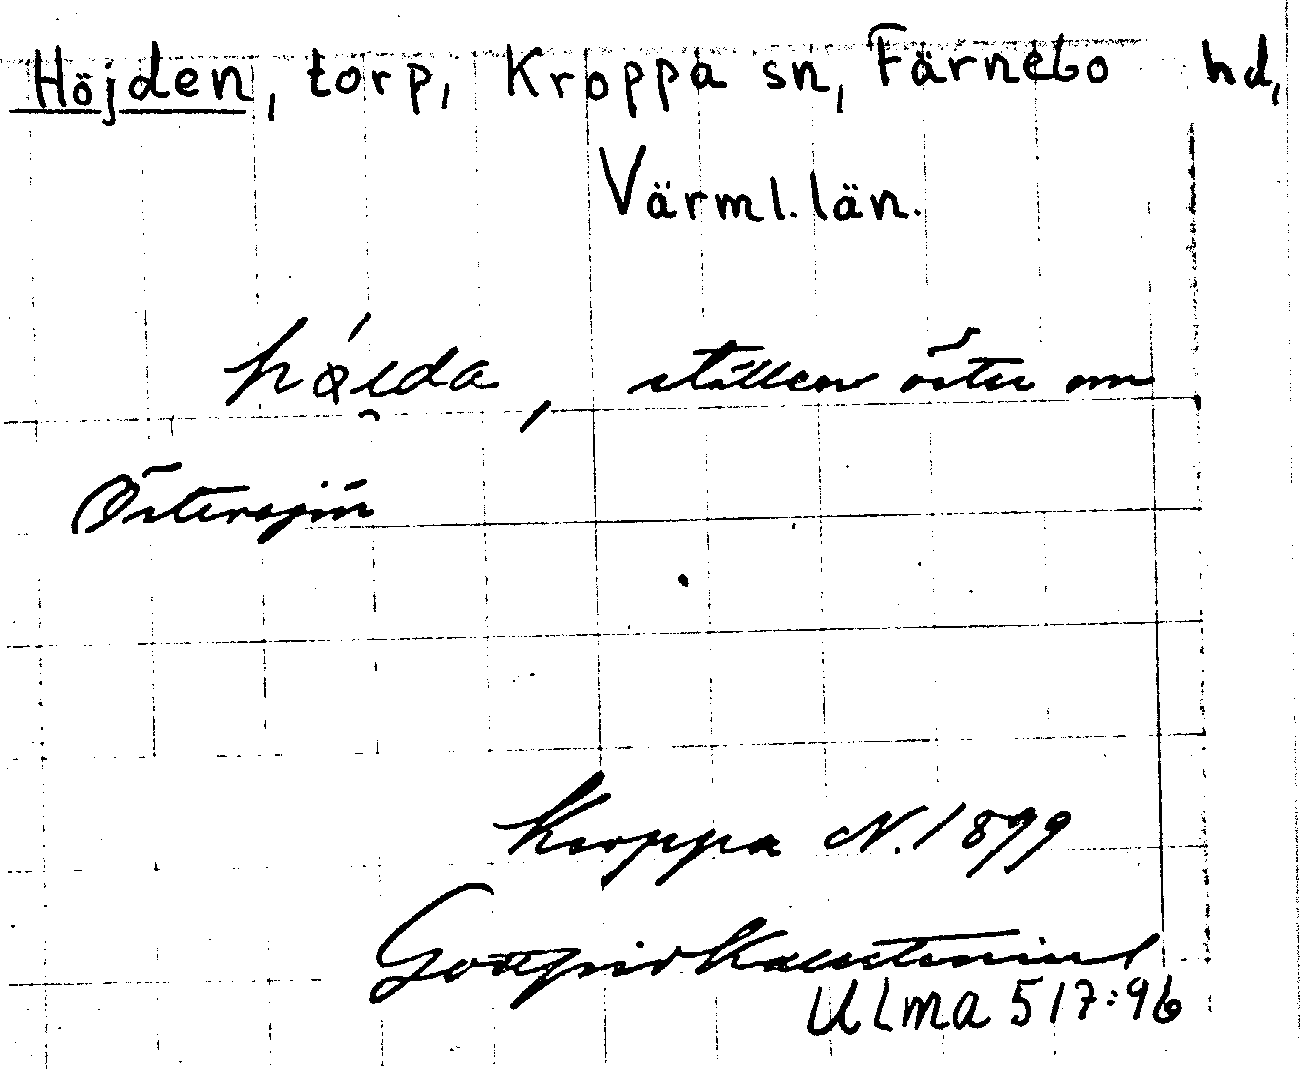 Höjden, torp, Kroppa sn, Färnebo hd,
Värml. län.
hǿi̯da, ställen öster om
Östersjön
Kroppa N. 1899
Gottfrid Kallstenius
Ulma 517:96